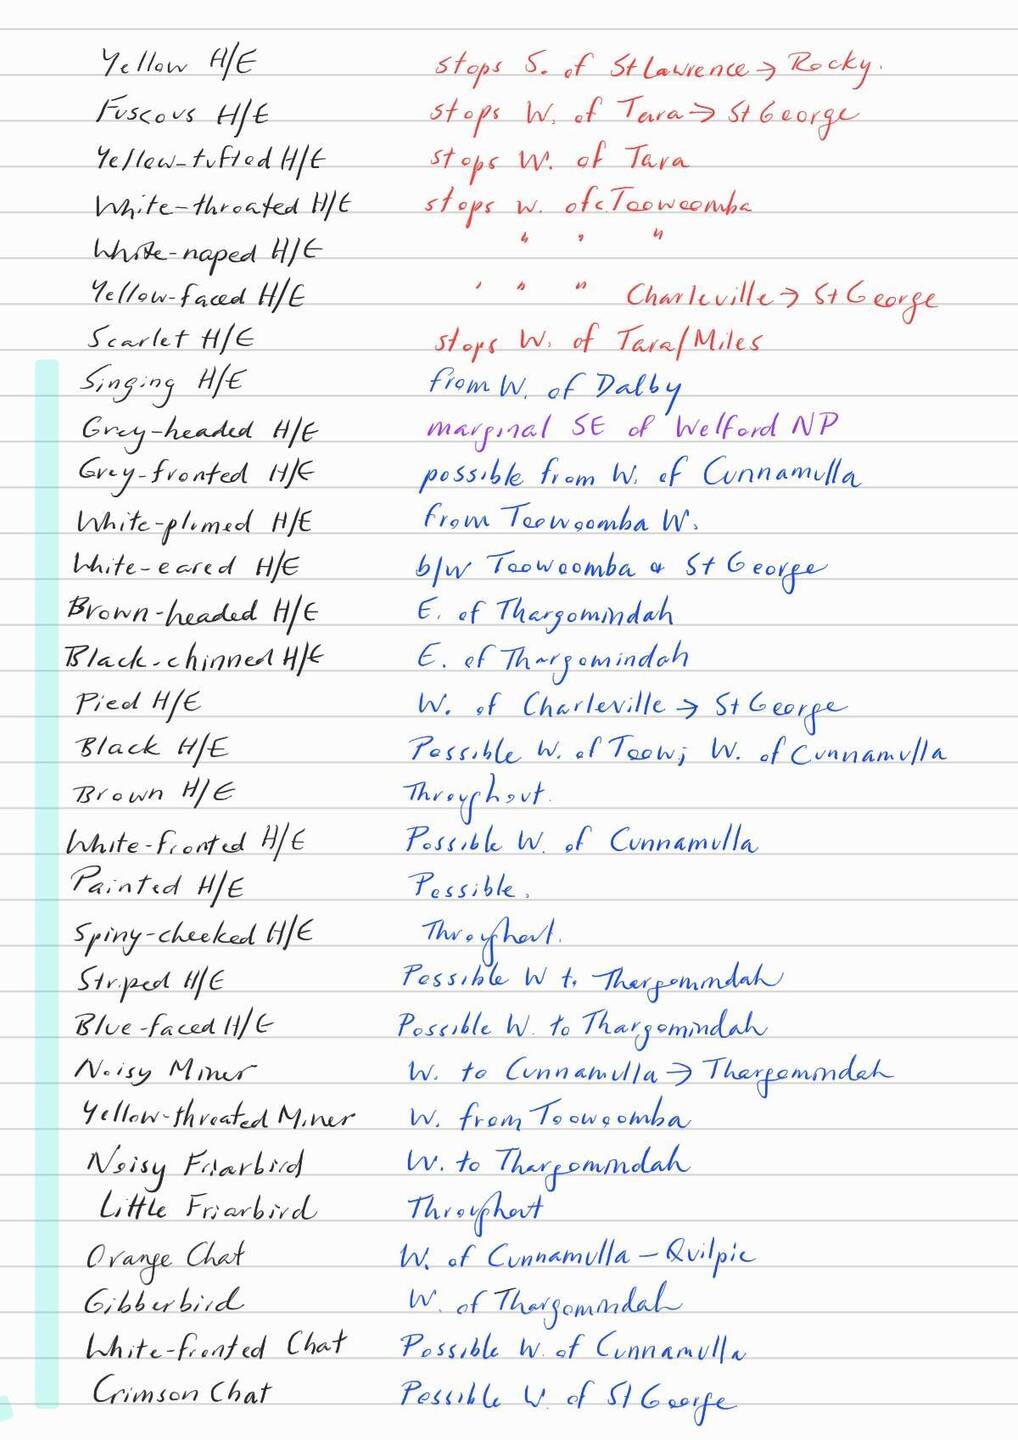 Yellow H/E stops S. of St Lawrence → Rocky.
Fuscous H/E stops W. of Tara → St George
Yellow-tufted H/E stops W. of Tara
White-throated H/E stops W. of Toowoomba
White-naped H/E " " "
Yellow-faced H/E " " " Charleville → St George
Scarlet H/E stops W. of Tara/Miles
Singing H/E from W. of Dalby
Grey-headed H/E marginal SE of Welford NP
Grey-fronted H/E possible from W. of Cunnamulla
White-plumed H/E from Toowoomba W.
White-eared H/E b/w Toowoomba & St George
Brown-headed H/E E. of Thargomindah
Black-chinned H/E E. of Thargomindah
Pied H/E W. of Charleville → St George
Black H/E Possible W. of Toow; W. of Cunnamulla
Brown H/E Throughout.
White-fronted H/E Possible W. of Cunnamulla
Painted H/E Possible.
Spiny-cheeked H/E Throughout.
Striped H/E Possible W to Thargomindah
Blue-faced H/E Possible W. to Thargomindah
Noisy Miner W. to Cunnamulla → Thargomindah
Yellow-throated Miner W. from Toowoomba
Noisy Friarbird W. to Thargomindah
Little Friarbird Throughout
Orange Chat W. of Cunnamulla - Quilpie
Gibberbird W. of Thargomindah
White-fronted Chat Possible W. of Cunnamulla
Crimson Chat Possible W. of St George